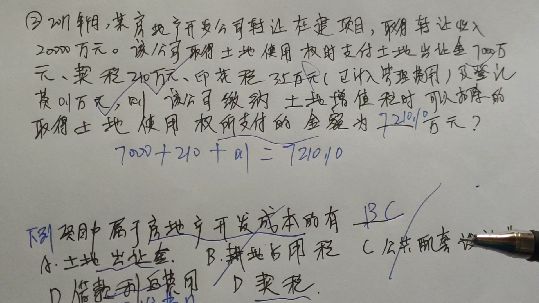 ② 2017年1月,某房地产开发公司转让在建项目,取得转让收入
20000万元。该公司取得土地使用权时支付土地出让金7000万
元、契税210万元、印花税3.5万元(已计入管理费用)及登记
费0.1万元,则该公司缴纳土地增值税时可以扣除的
取得土地使用权所支付的金额为7210.10万元?
7000+210+0.1=7210.10
下列项目中属于房地产开发成本的有 BC
A.土地出让金. B.耕地占用税 C公共配套设
D借款利息费用 D契税.